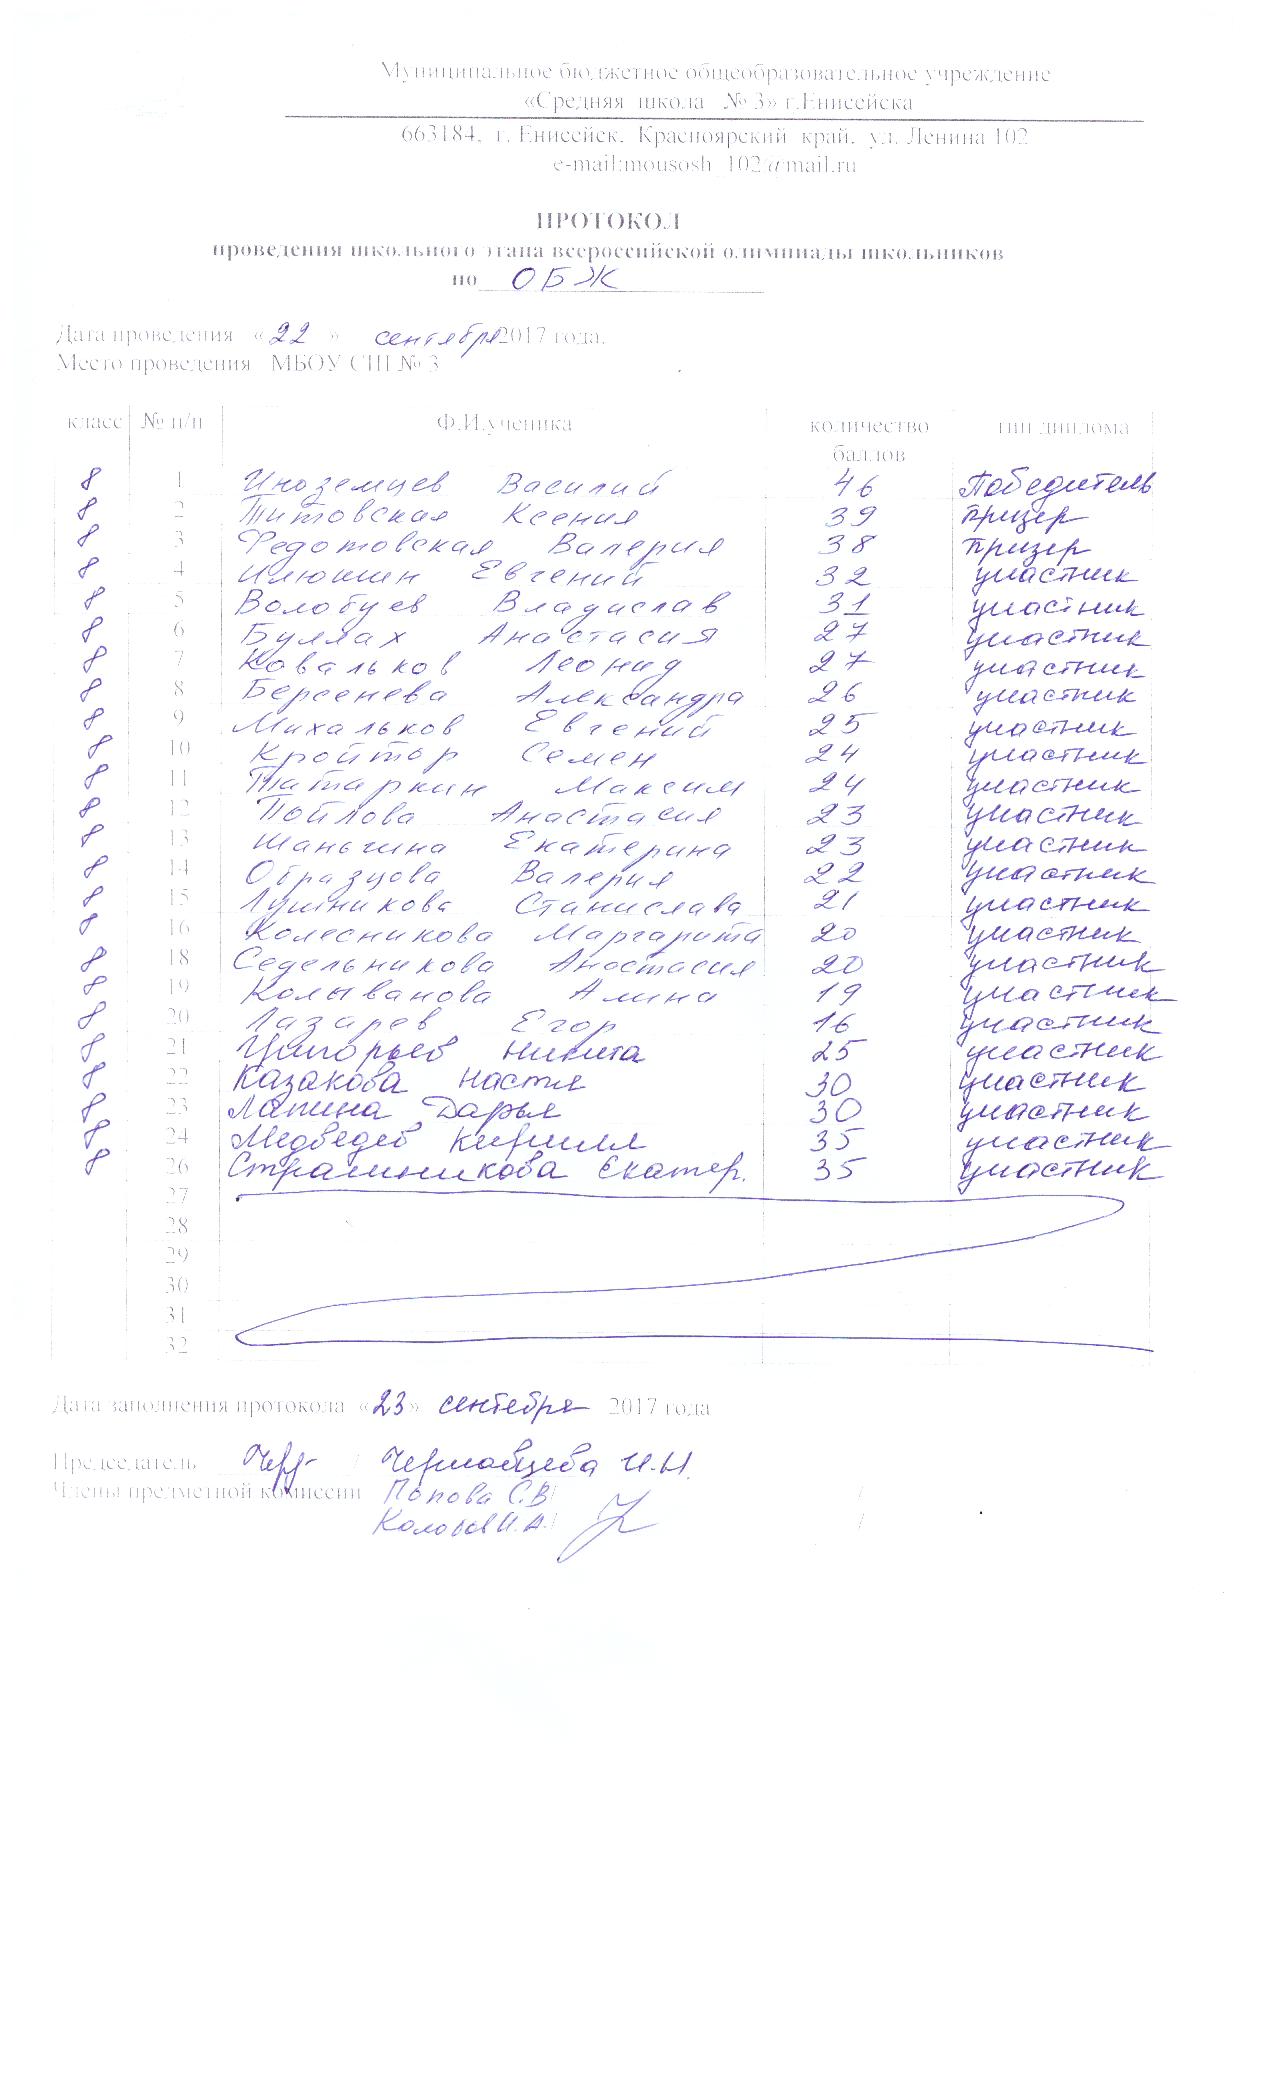 Муниципальное бюджетное общеобразовательное учреждение
«Средняя школа № 3» г.Енисейска
663184, г. Енисейск, Красноярский край, ул. Ленина 102
e-mail:mousosh_102@mail.ru
ПРОТОКОЛ
проведения школьного этапа всероссийской олимпиады школьников
по ОБЖ
Дата проведения «22» сентября 2017 года.
Место проведения МБОУ СШ № 3
класс № п/п Ф.И.ученика количество баллов тип диплома
8 1 Иноземцев Василий 46 Победитель
8 2 Титовская Ксения 39 призер
8 3 Федотовская Валерия 38 призер
8 4 Илюшин Евгений 32 участник
8 5 Волобуев Владислав 31 участник
8 6 Буллах Анастасия 27 участник
8 7 Ковальков Леонид 27 участник
8 8 Берсенева Александра 26 участник
8 9 Михальков Евгений 25 участник
8 10 Кройтор Семен 24 участник
8 11 Татаркин Максим 24 участник
8 12 Пойлова Анастасия 23 участник
8 13 Шаньгина Екатерина 23 участник
8 14 Образцова Валерия 22 участник
8 15 Лушникова Станислава 21 участник
8 16 Колесникова Маргарита 20 участник
8 18 Седельникова Анастасия 20 участник
8 19 Колыванова Алина 19 участник
8 20 Лазарев Егор 16 участник
8 21 Григорьев Никита 25 участник
8 22 Казакова Настя 30 участник
8 23 Лапина Дарья 30 участник
8 24 Медведев Кирилл 35 участник
8 26 Страшникова Екатер. 35 участник
27
28
29
30
31
32
Дата заполнения протокола «23» сентября 2017 года
Председатель / И.И.
Члены предметной комиссии Попова С.В/ /
И.А./ /